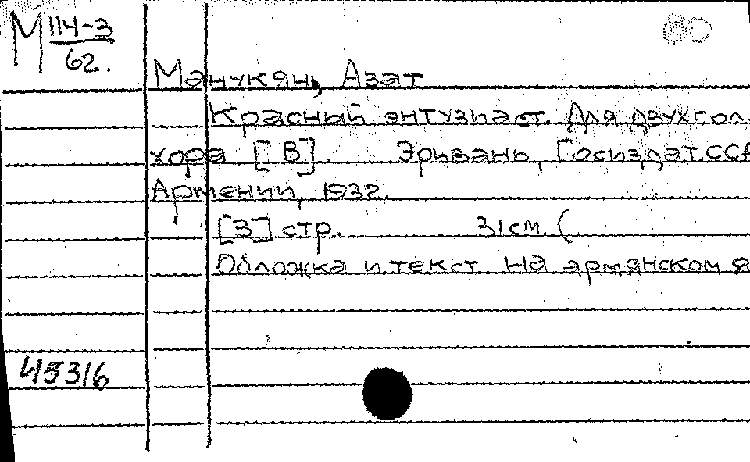 М 114-3
62.
Манукян, Азат
Красный энтузиаст. Для двухгол.
хора [В]. Эривань, Госиздат ССР
Армении, 1932.
[3] стр. 31 см (
Обложка и текст на армянском я
45316